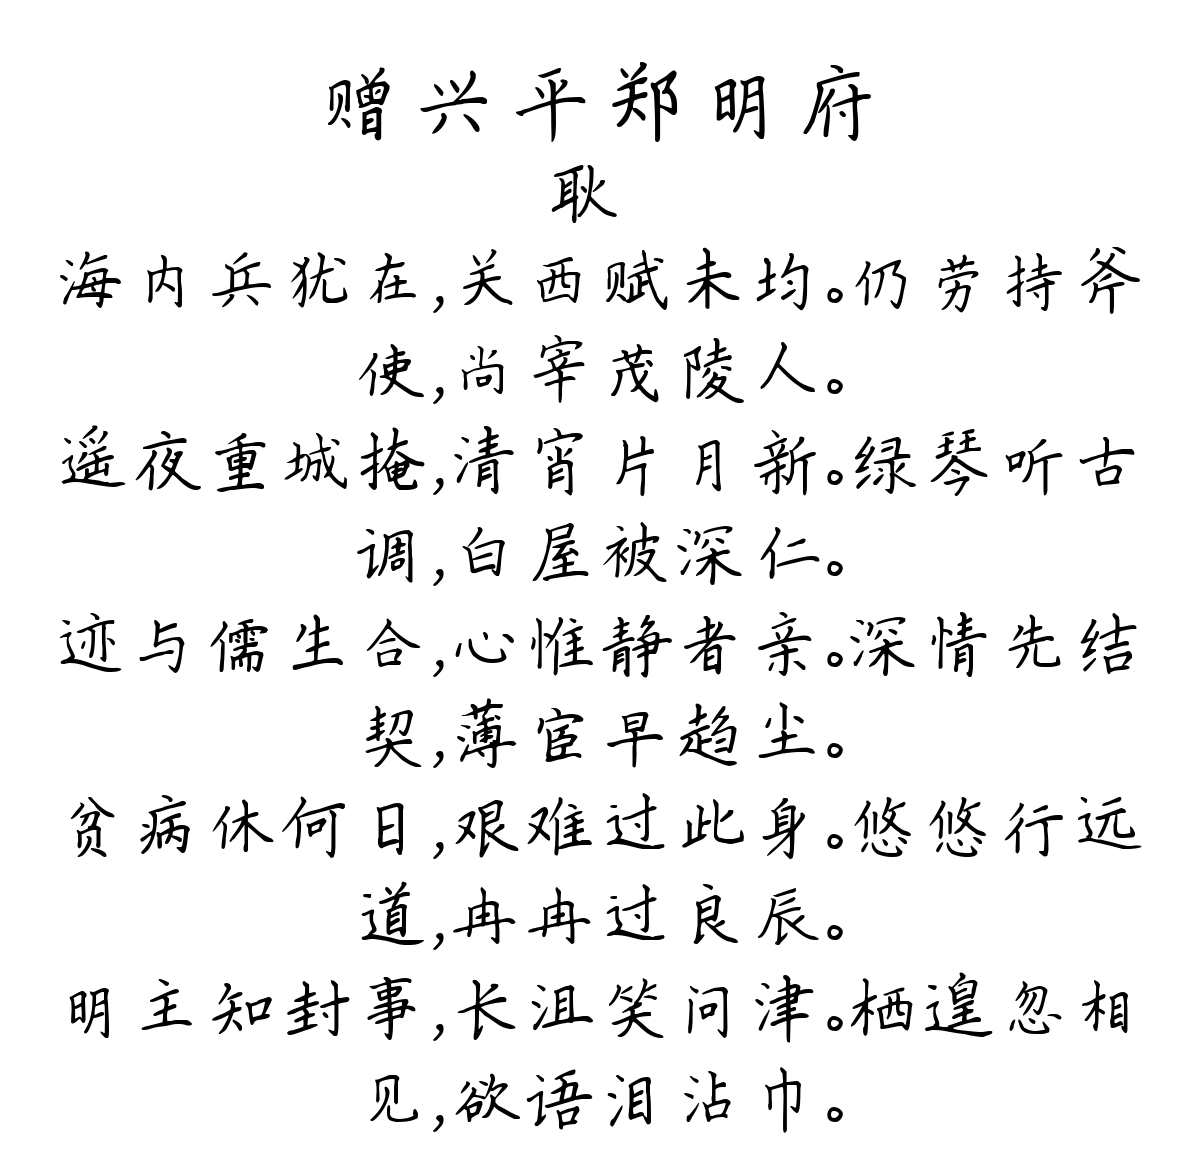 赠兴平郑明府
耿
海内兵犹在,关西赋未均。仍劳持斧
使,尚宰茂陵人。
遥夜重城掩,清宵片月新。绿琴听古
调,白屋被深仁。
迹与儒生合,心惟静者亲。深情先结
契,薄宦早趋尘。
贫病休何日,艰难过此身。悠悠行远
道,冉冉过良辰。
明主知封事,长沮笑问津。栖遑忽相
见,欲语泪沾巾。